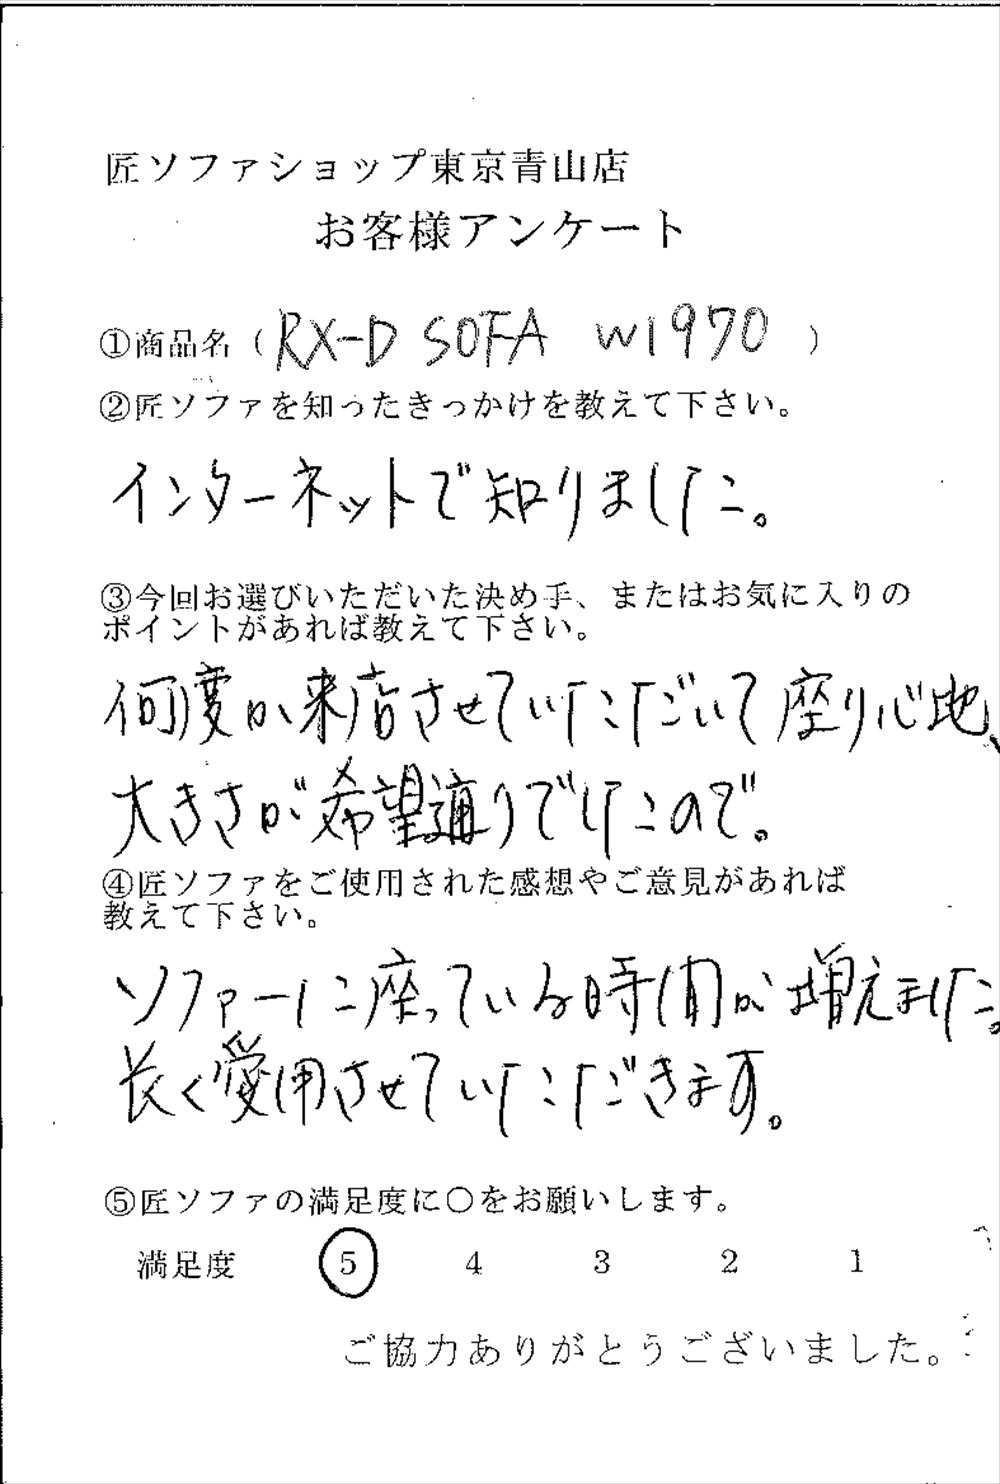 匠ソファショップ東京青山店
お客様アンケート
①商品名（ RX-D SOFA W1970 ）
②匠ソファを知ったきっかけを教えて下さい。
インターネットで知りました。
③今回お選びいただいた決め手、またはお気に入りの
ポイントがあれば教えて下さい。
何度か来店させていただいて座り心地、
大きさが希望通りでしたので。
④匠ソファをご使用された感想やご意見があれば
教えて下さい。
ソファーに座っている時間が増えました。
長く愛用させていただきます。
⑤匠ソファの満足度に〇をお願いします。
満足度 5 4 3 2 1
ご協力ありがとうございました。